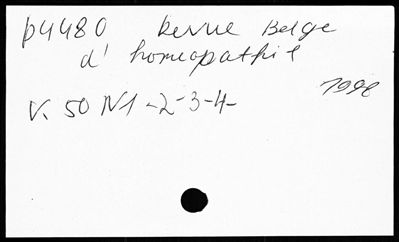 p4480 Revue Belge
d' homeopathie
1998
V. 50 N1-2-3-4-